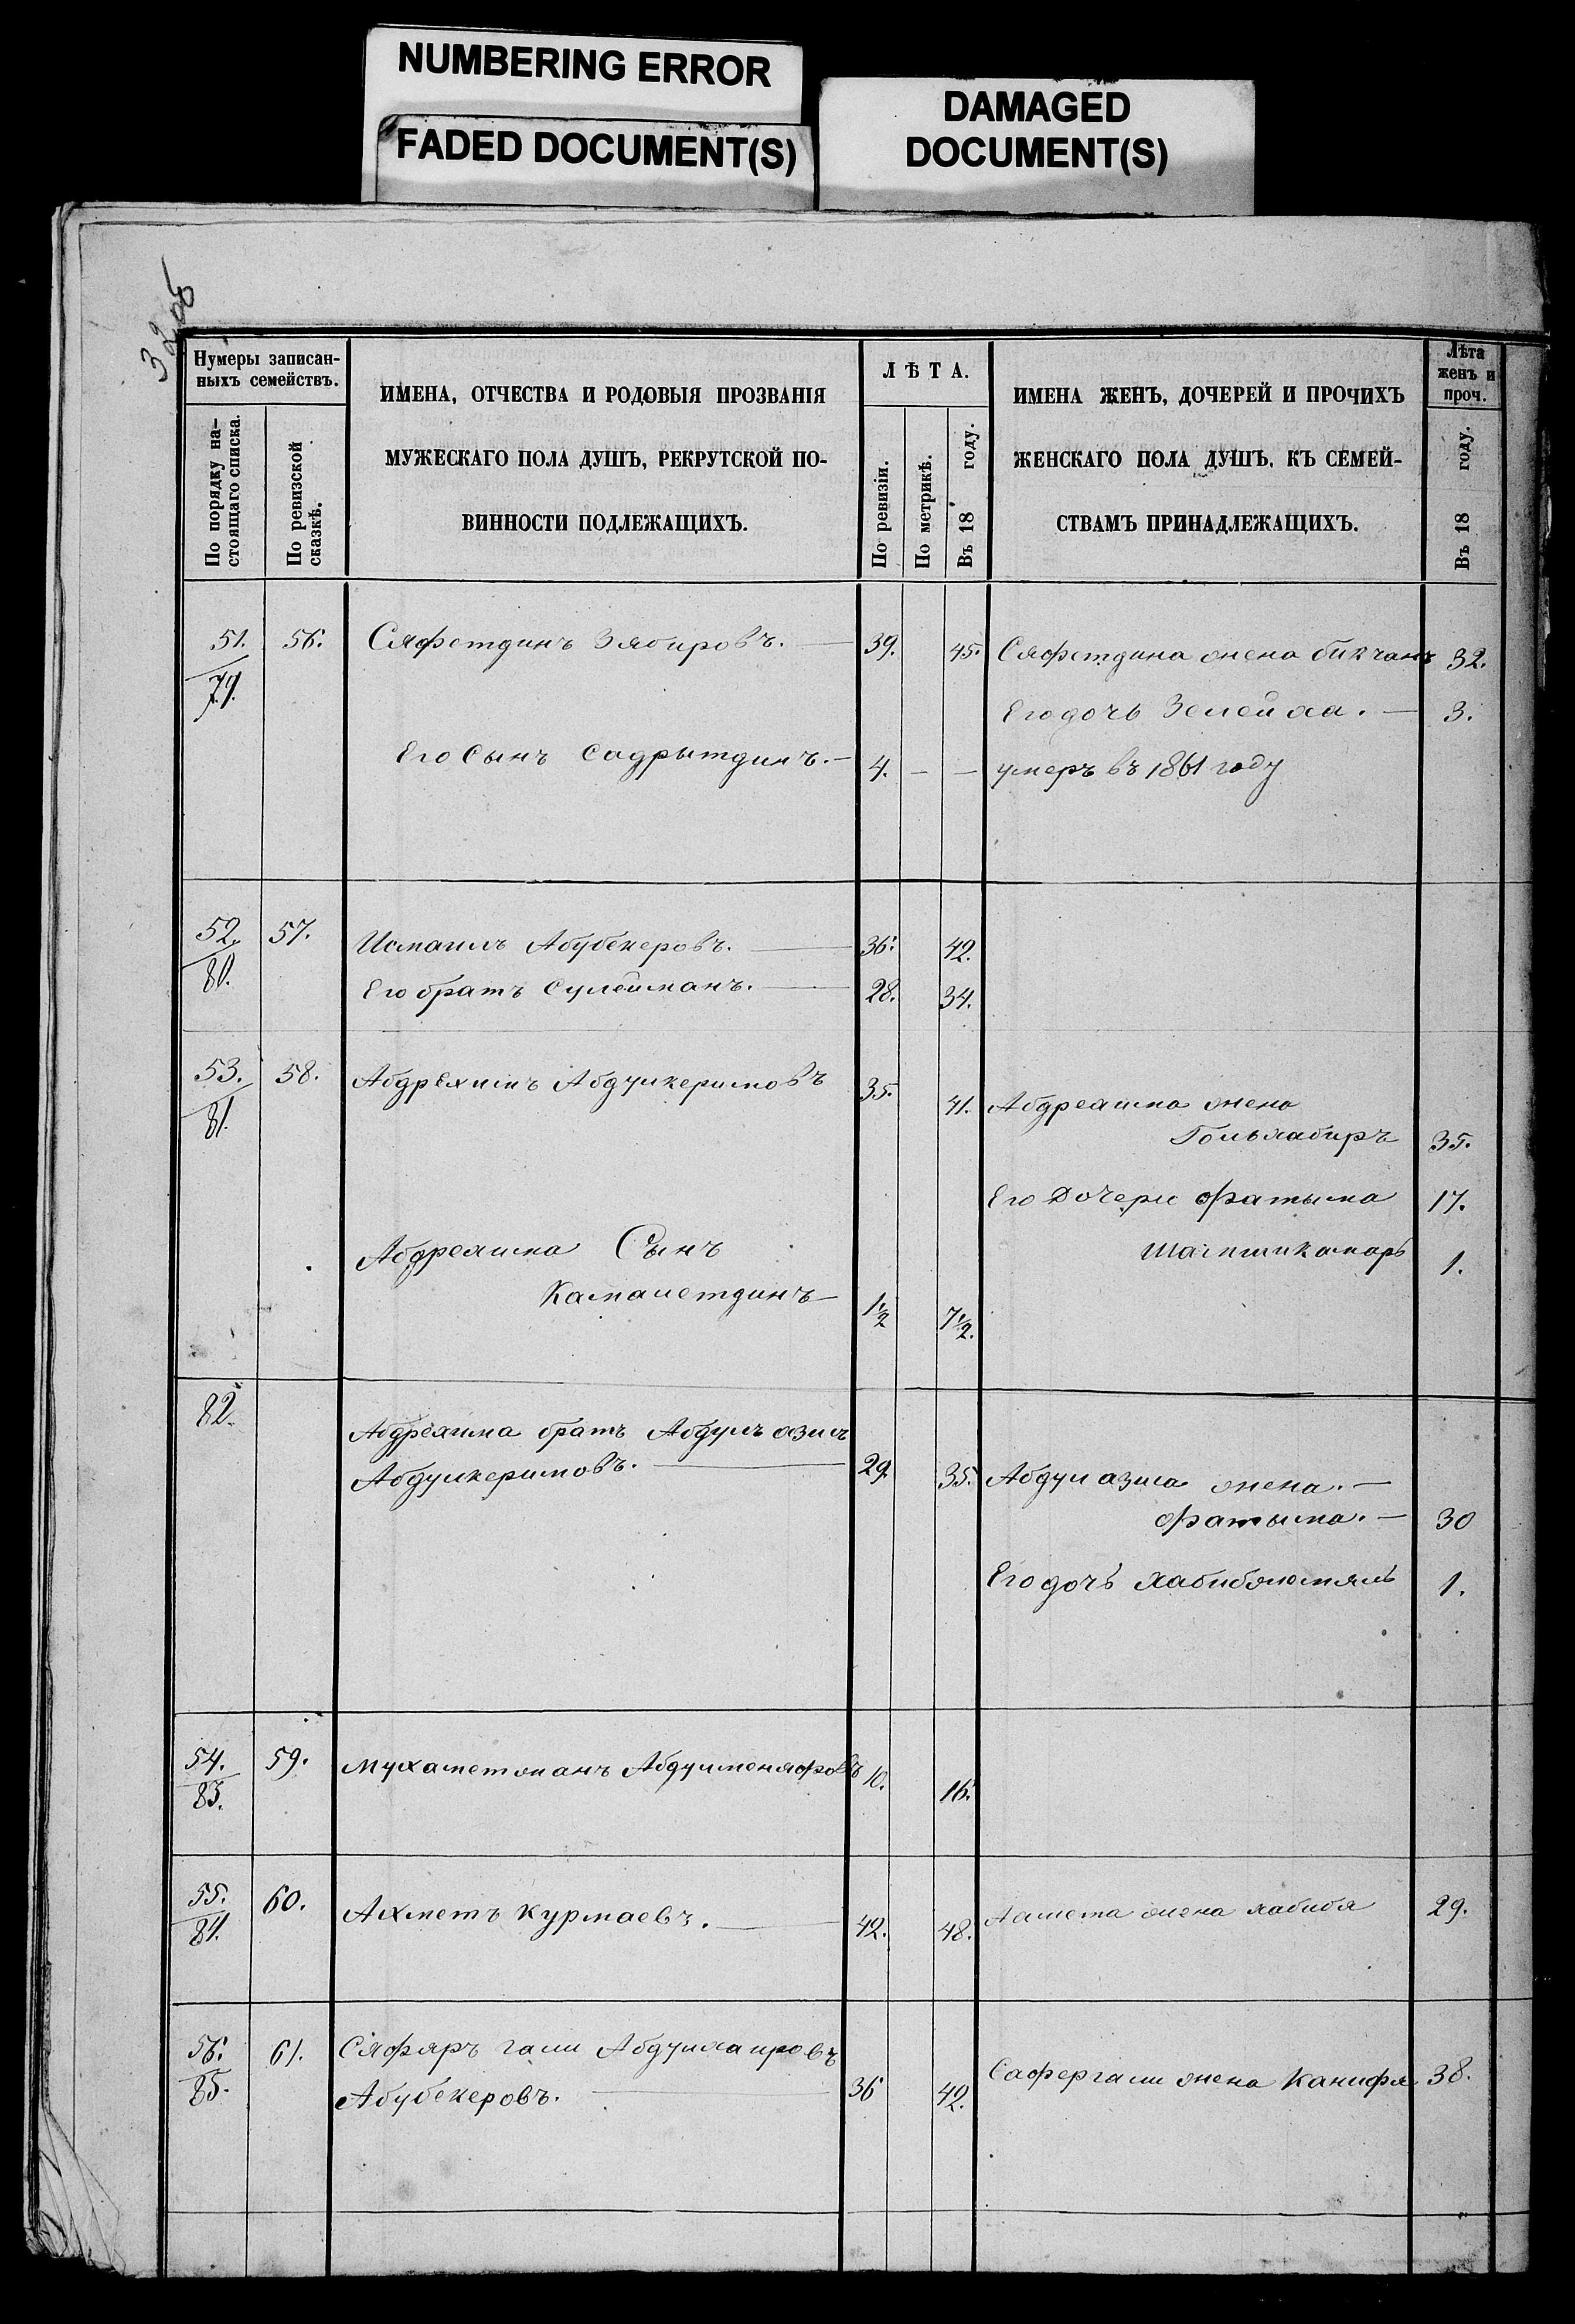 NUMBERING ERROR
FADED DOCUMENT(S)
DAMAGED
DOCUMENT(S)
Нумеры записан-
ныхъ семействъ.
По порядку на-
стоящаго списка.
По ревизской
сказкѣ.
ИМЕНА, ОТЧЕСТВА И РОДОВЫЯ ПРОЗВАНІЯ
МУЖЕСКАГО ПОЛА ДУШЪ, РЕКРУТСКОЙ ПО-
ВИННОСТИ ПОДЛЕЖАЩИХЪ.
ЛѢТА.
По ревизіи.
По метрикѣ.
Въ 18 году.
ИМЕНА ЖЕНЪ, ДОЧЕРЕЙ И ПРОЧИХЪ
ЖЕНСКАГО ПОЛА ДУШЪ, КЪ СЕМЕЙ-
СТВАМЪ ПРИНАДЛЕЖАЩИХЪ.
Лѣта
женъ и
проч.
Въ 18 году.
51. 56. Сяфетдинъ Зябировъ. — 39. 45. Сяфетдина жена бикчанъ 32.
79.
Его дочь Зелейха. — 3.
Его Сынъ Садрытдинъ. — 4. — — умеръ въ 1861 году
52. 57. Исмаилъ Абубекеровъ. — 36. 42.
80. Его братъ Сулейманъ. — 28. 34.
53. 58. Абдрехимъ Абдулкеримовъ 35. 41. Абдрехима жена
81. Гольжабиръ 35.
Его Дочери Фатыма 17.
Абдрехима Сынъ
Камалетдинъ — 1½ 7½. 1.
82. Абдрехима братъ Абдулъ азисъ
Абдулкеримовъ. — 29. 35. Абдул азиса жена. —
Фатыма. — 30
Его дочь 1.
54. 59. Мухаметжанъ Абдулменяфовъ 10. 16.
83.
55. 60. Ахметъ Курмаевъ. — 42. 48. Ахмета жена хабибя 29.
84.
56. 61. Сяфяръ гали Абдулхаировъ
85. Абубекеровъ. — 36 42. Сафергали жена Канифя 38.